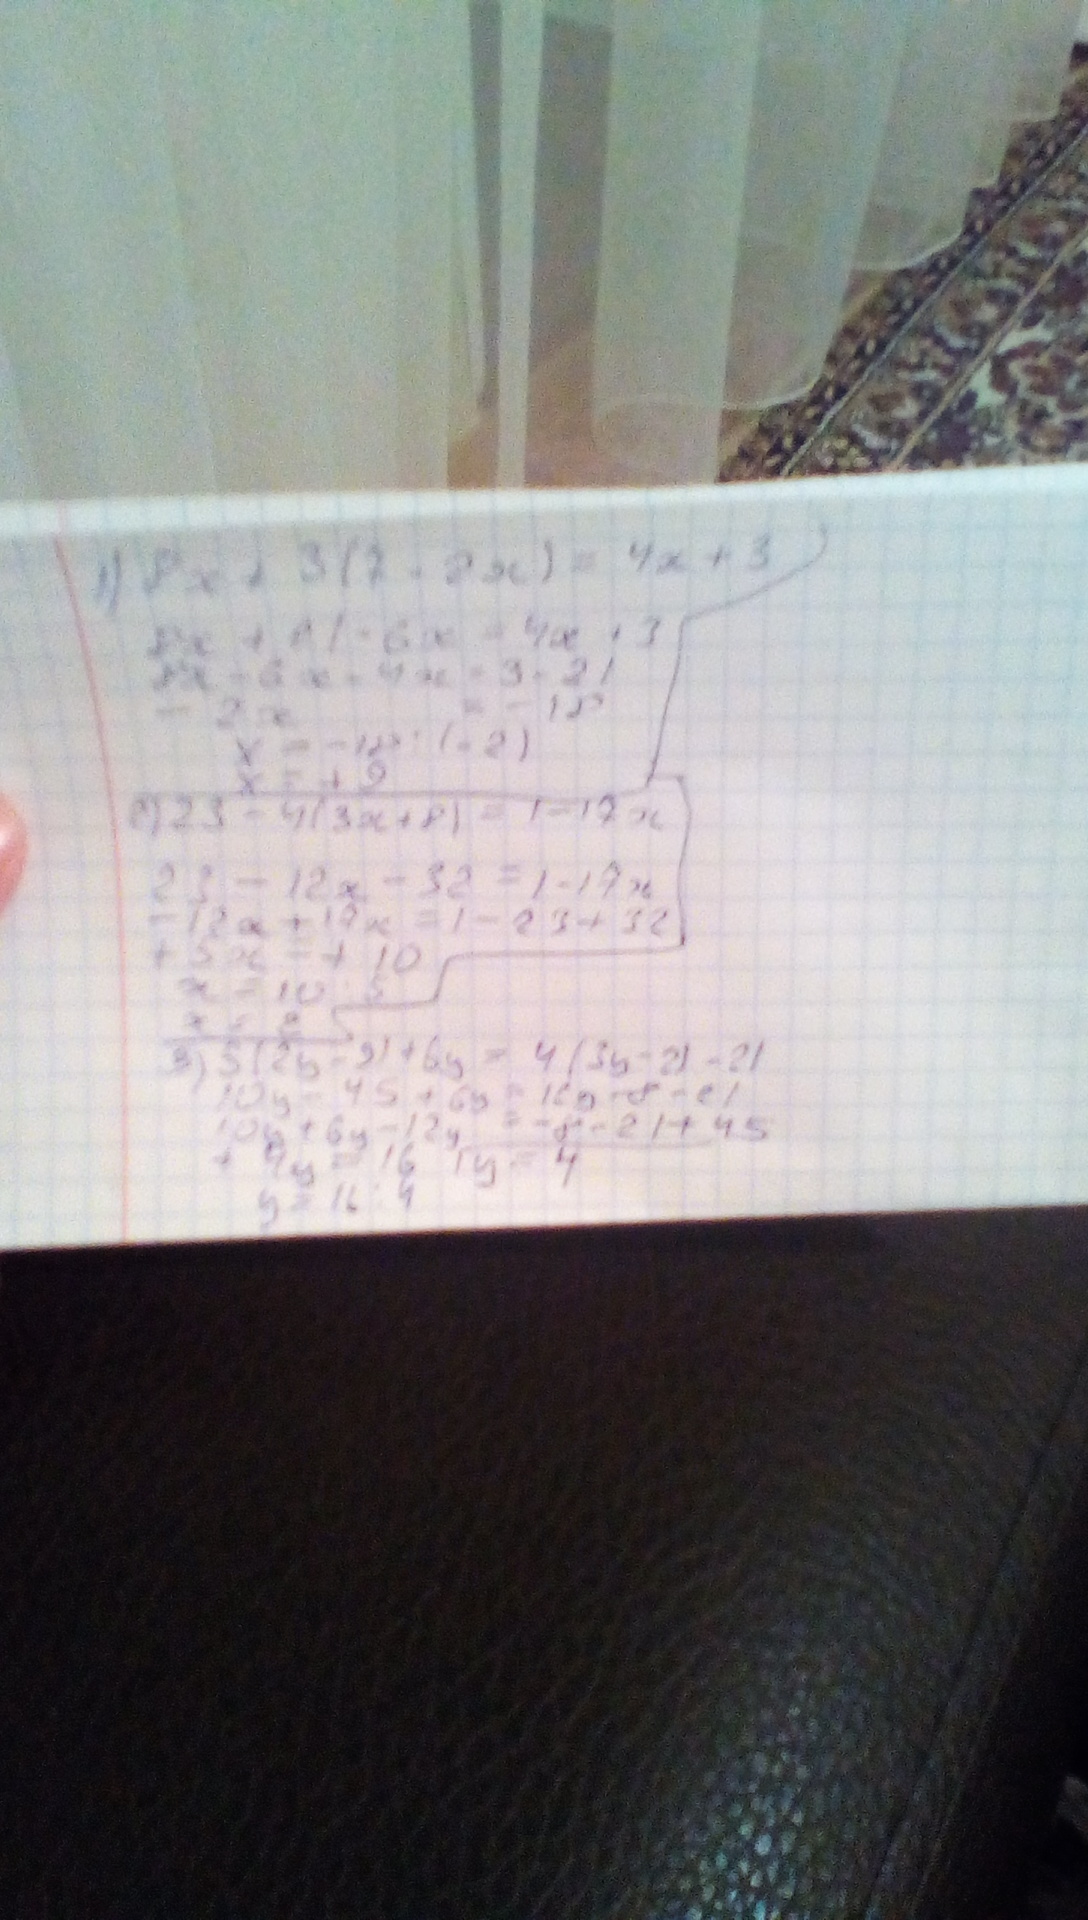 1) 8x + 3(7 - 2x) = 4x + 3
8x + 21 - 6x = 4x + 3
8x - 6x - 4x = 3 - 21
- 2x = - 18
x = -18 : (-2)
x = + 9
2) 23 - 4(3x+8) = 1-17x
23 - 12x - 32 = 1-17x
-12x + 17x = 1 - 23 + 32
+ 5x = + 10
x = 10 : 5
x = 2
3) 5(2y - 9) + 6y = 4(3y-2) - 21
10y - 45 + 6y = 12y - 8 - 21
10y + 6y - 12y = -8 - 21 + 45
+ 4y = 16 y = 4
y = 16 : 4